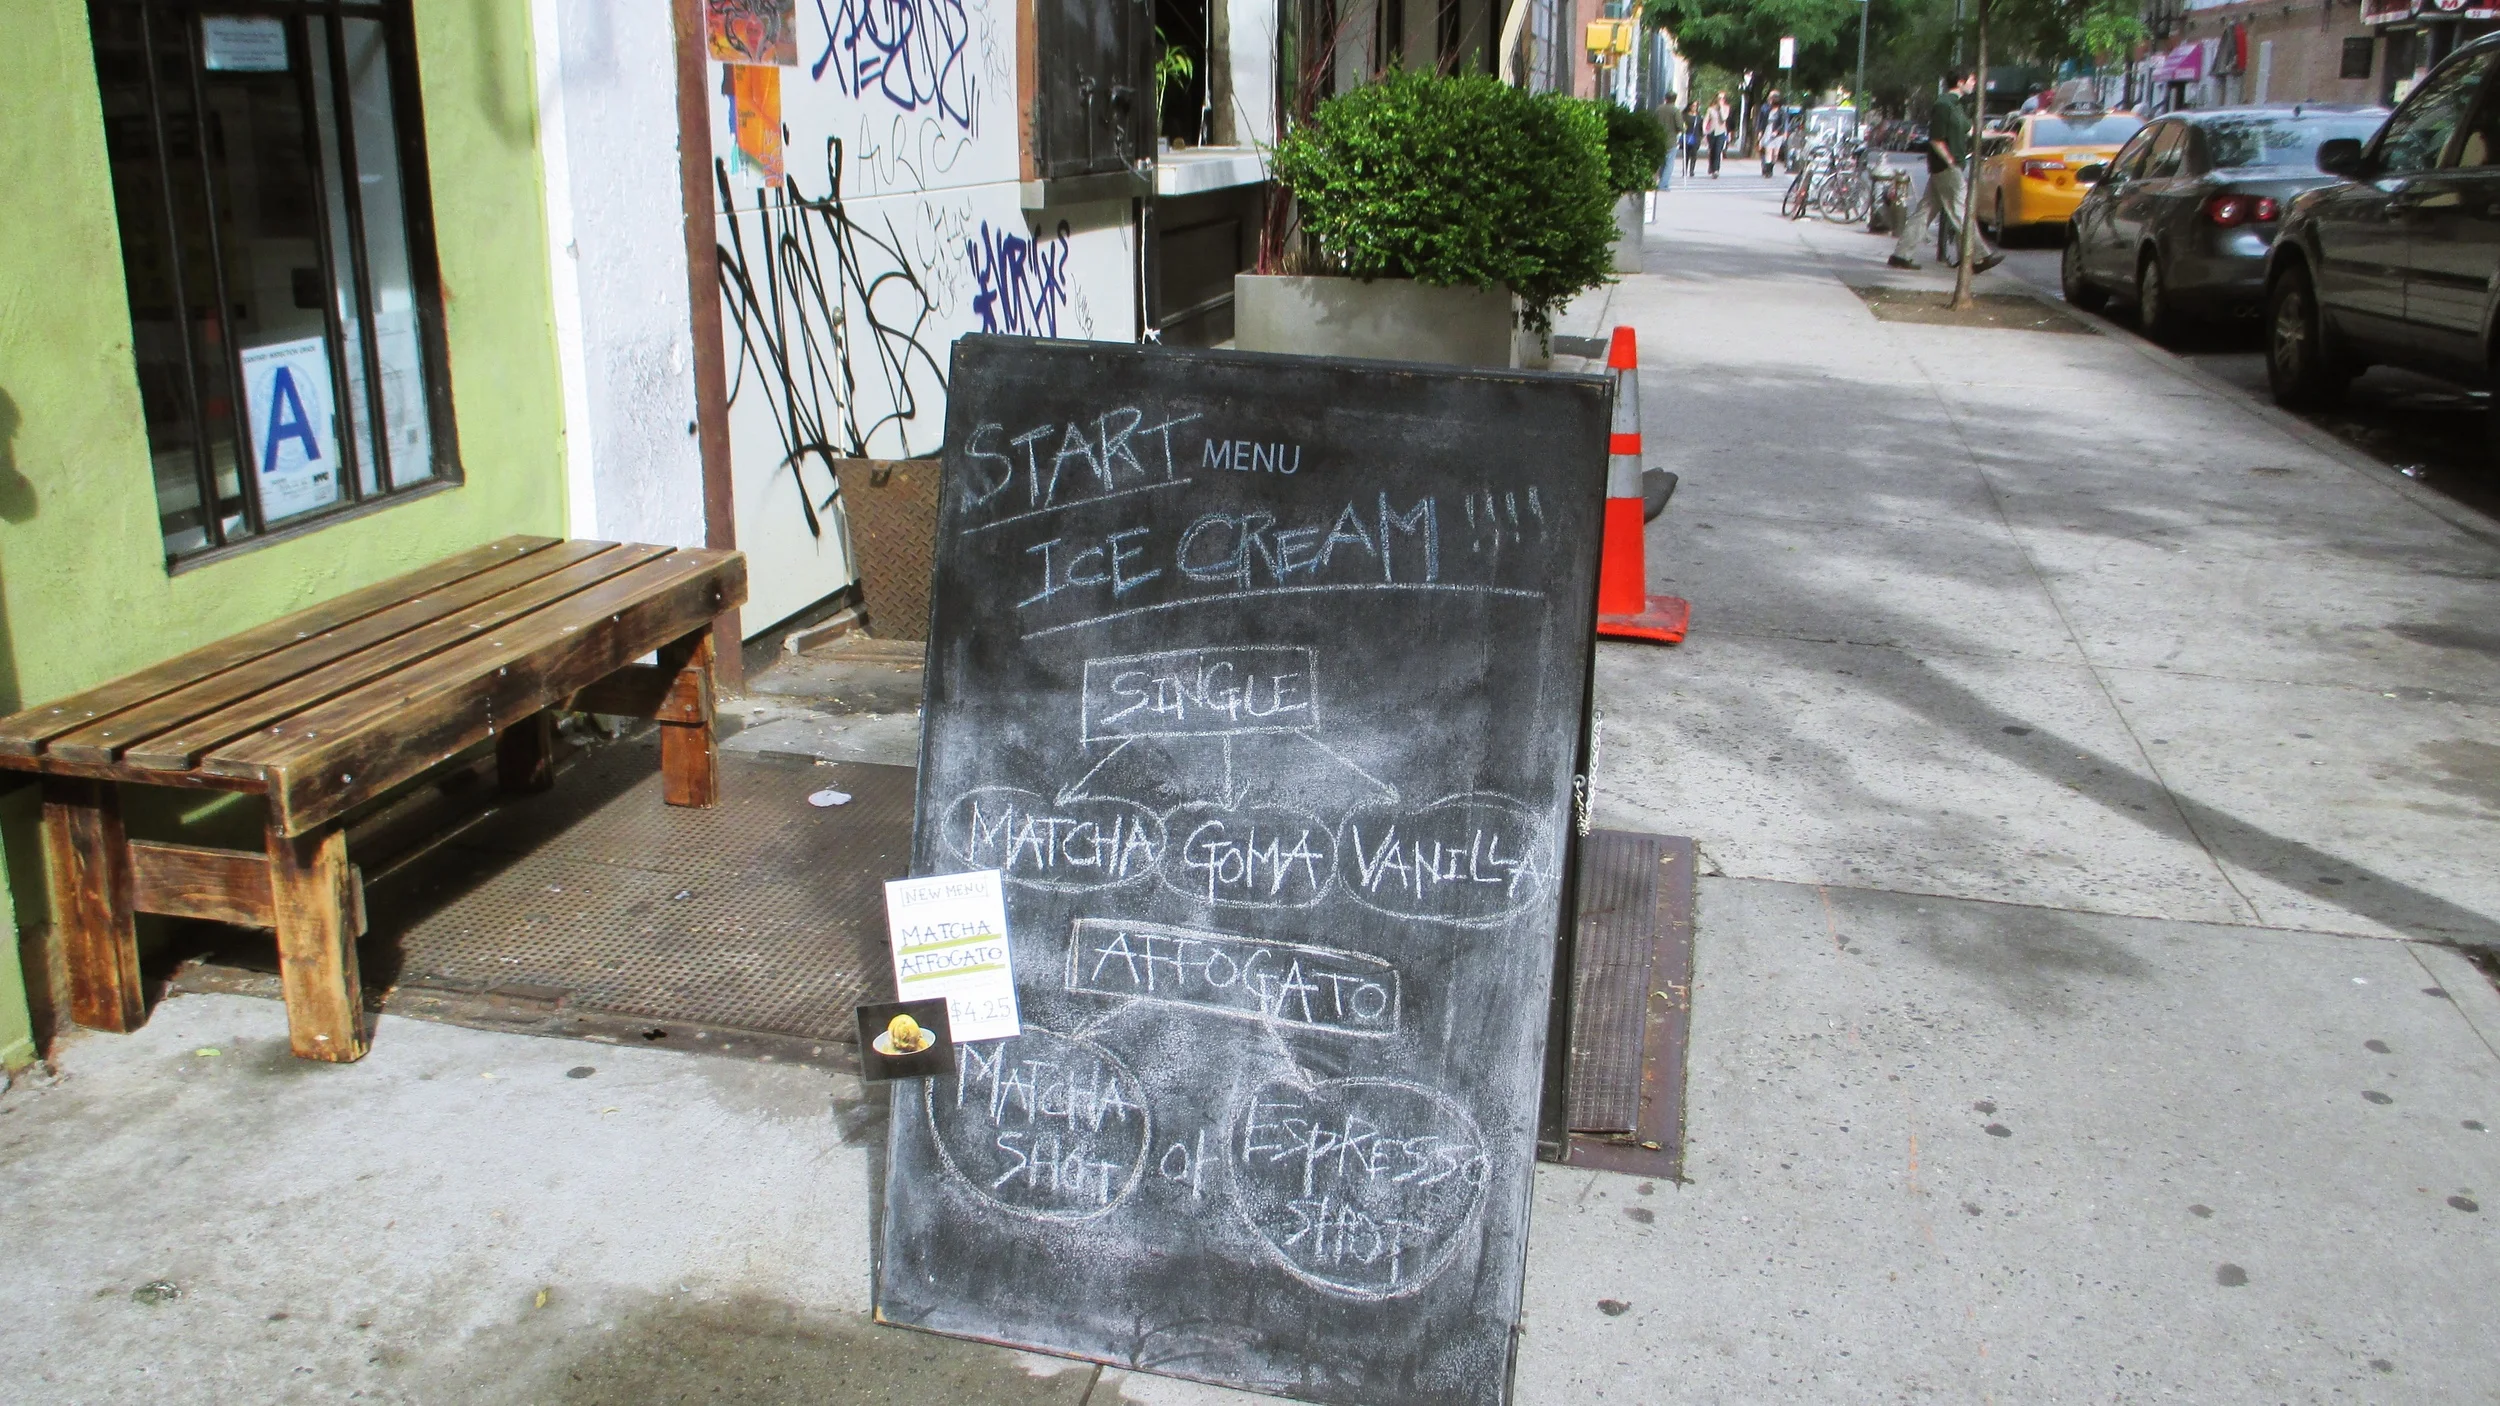 START MENU
ICE CREAM !!!!
SINGLE
MATCHA GOMA VANILLA
AFFOGATO
MATCHA
SHOT
or
ESPRESSO
SHOT
NEW MENU
MATCHA
AFFOGATO
$4.25
SANITARY INSPECTION GRADE
A